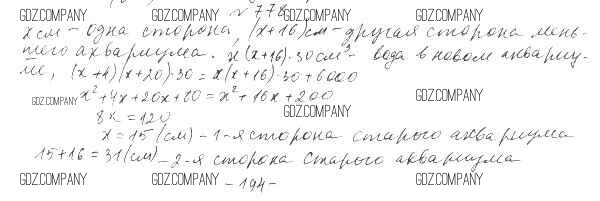 GDZ.COMPANY № 778 GDZ.COMPANY GDZ.COMPANY
x см – одна сторона, (x+16) см – другая сторона мень-
шего аквариума. x(x+16)·30 см³ – вода в новом аквариу-
ме, (x+4)(x+20)·30 = x(x+16)·30+6000
GDZ.COMPANY x²+4x+20x+80 = x²+16x+200 GDZ.COMPANY
8x = 120 GDZ.COMPANY
x = 15 (см) – 1-я сторона старого аквариума
15+16 = 31 (см) – 2-я сторона старого аквариума
GDZ.COMPANY GDZ.COMPANY GDZ.COMPANY
- 194 -